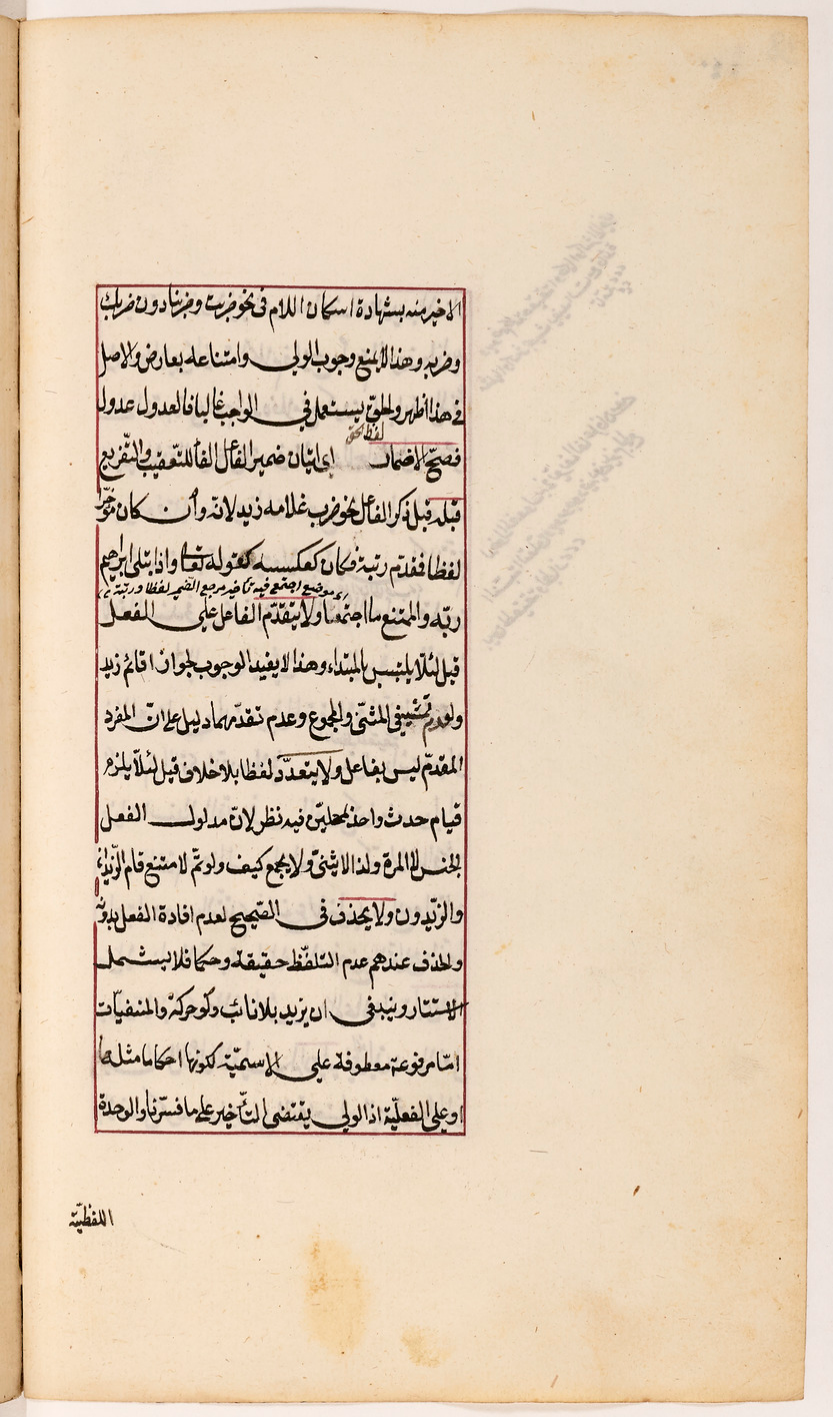 الاخير منه بشهادة اسكان اللام فى نحو ضربت وضربنا دون ضربك
وضربه وهذا لا يمنع وجوب الولى وامتناعه بعارض والاصل
فى هذا اظهر ولحق يستعمل فى الواجب غالبا فالعدول عدول
لفظ الحق
فصحّ الاضمار اى اتيان ضمير الفاعل الفاء للتّعقيب والتّفريع
قبله قبل ذكر الفاعل نحو ضرب غلامه زيد لانّه وان كان مؤخّرا
لفظا فقدّم رتبة فكان كعكسه كقوله تعالى واذ ابتلى ابراهيم
موضع اجتمع فيه تأخير مرجع الضمير لفظا ورتبة
ربّه والممتنع ما اجتمعا ولا يتقدّم الفاعل على الفعل
قيل لئلّا يلتبس بالمبتداء وهذا لا يفيد الوجوب لجواز اقائم زيد
ولعدم تمشيه فى المثنّى والمجموع وعدم تقدّمهما دليل على انّ المفرد
المقدّم ليس بفاعل ولا يتعدّد لفظا بلا خلاف قيل لئلّا يلزم
قيام حدث واحد لمحلين فيه نظر لانّ مدلول الفعل
الجنس لا المرة ولذا لا يثنىّ ولا يجمع كيف ولو تمّ لامتنع قام الزّيدان
والزّيدون ولا يحذف فى الصّحيح لعدم افادة الفعل بدونه
والحذف عندهم عدم التلفّظ حقيقة وحكما فلا يشمل
الاستتار وينبغى ان يزيد بلا نائب ولو حركة والمنفيّات
امّا مرفوعة معطوفة على الاسميّة لكونها احكاما مثلها
او على الفعليّة اذ الولى يقتضى التأخير على ما فسّرنا والوحدة
اللفظيّة